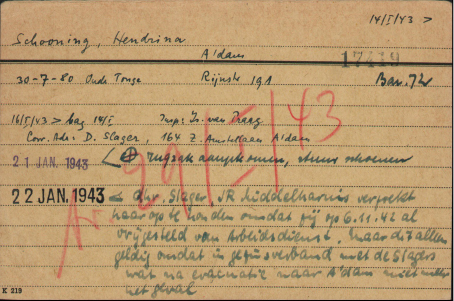 14/I/43 >
Schooning, Hendrina
A'dam
17419
30-7-80 Oude Tonge Rijnstr 191 Bar. 72
16/I/43 > bag. 14/I Insp: Is. van Praag
Corr. Adr: D. Slager, 164 Z. Amstellaan A'dam
21 JAN. 1943 rugzak aangekomen, stuur schoenen
22 JAN. 1943 < dhr. Slager JR Middelharnis verzoekt
haar op te houden omdat zij op 6.11.42 al
vrijgesteld van Arbeidsdienst. Maar dit alleen
geldig omdat in gezinsverband met de Slagers
wat na evacuatie naar A'dam niet meer
het geval
29/I/43
K 219